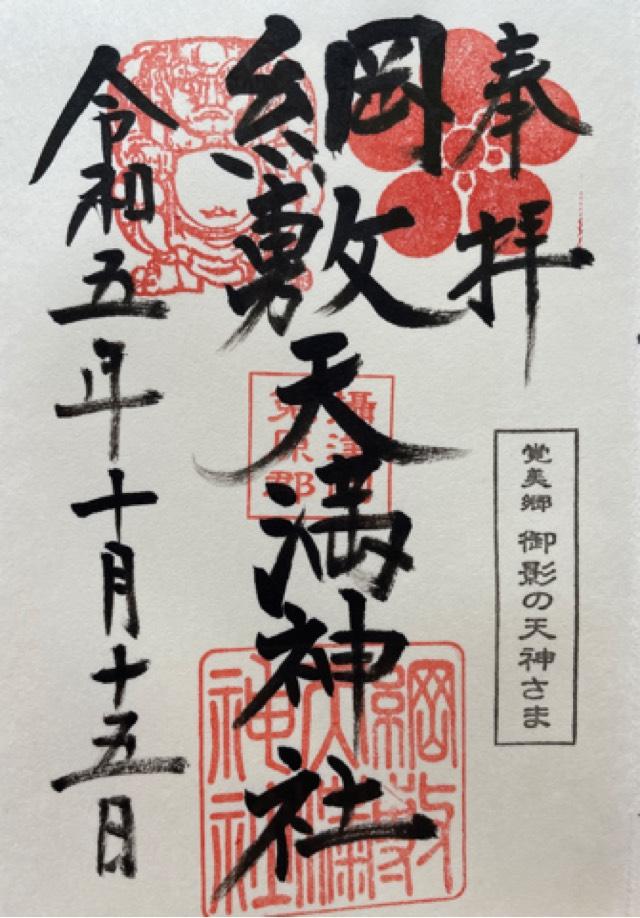 奉拝
綱敷天満神社
令和五年十月十五日
覚美郷 御影の天神さま
攝津国
菟原郡
綱敷
天満
神社